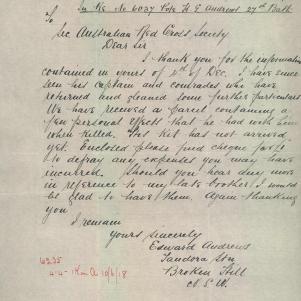 In Re No 6037 Pte H. E. Andrews 27th Batt
To
Sec Australian Red Cross Society
Dear Sir
I thank you for the information
contained in yours of 4th of Dec. I have since
seen his captain and comrades who have
returned and gleaned some further particulars
We have received a parcel containing a
few personal effects that he had with him
when killed. His kit has not arrived
yet. Enclosed please find cheque for
to defray any expenses you may have
incurred. Should you hear any more
in reference to my late brother I would
be glad to have them, Again thanking
you
I remain
yours sincerely
Edward Andrews
Pandora Stn
Broken Hill
N. S. W.
10/6/18